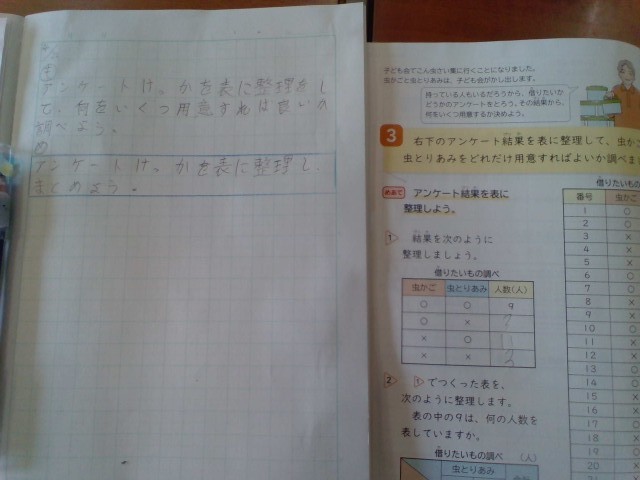 アンケートけっかを表に整理をし
て、何をいくつ用意すれは良いか
調べよう。
め
アンケートけっかを表に整理し、
まとめよう。
子ども会でこん虫さい集に行くことになりました。
虫かごと虫とりあみは、子ども会がかし出します。
持っている人もいるだろうから、借りたいか
どうかのアンケートをとろう。その結果から、
何をいくつ用意するか決めよう。
3 右下のアンケート結果を表に整理して、虫か
虫とりあみをどれだけ用意すればよいか調べま
めあて アンケート結果を表に
整理しよう。
1 結果を次のように
整理しましょう。
借りたいもの調べ
虫かご 虫とりあみ 人数(人)
○ ○ 9
○ × 7
× ○ 11
× ×
2 1でつくった表を、
次のように整理します。
表の中の9は、何の人数を
表していますか。
借りたいもの調べ (人)
虫とりあみ 合計
借りたいも
番号 虫かご
1 ○
2 ○
3 ×
4 ×
5 ×
6 ○
7 ○
8 ×
9 ×
10 ○
11 ×
12 ×
13 ○
14 ○
15 ×
16 ×
17 ○
18 ○
19 ×
20 ×